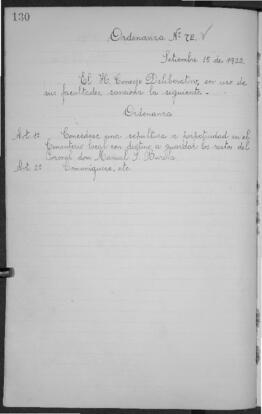 130
Ordenanza Nº 72
Setiembre 15 de 1922.
El H. Concejo Deliberativo, en uso de
sus facultades, sanciona la siguiente. -
Ordenanza
Art. 1º Concédese una sepultura a perpetuidad en el
Cementerio local con destino a guardar los restos del
Coronel don Manuel J.
Art. 2º Comuníquese, etc.